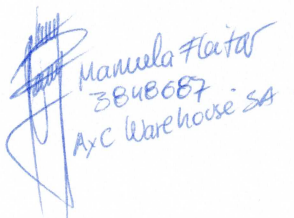 Manuela Fleitas
3848687
AxC Warehouse SA